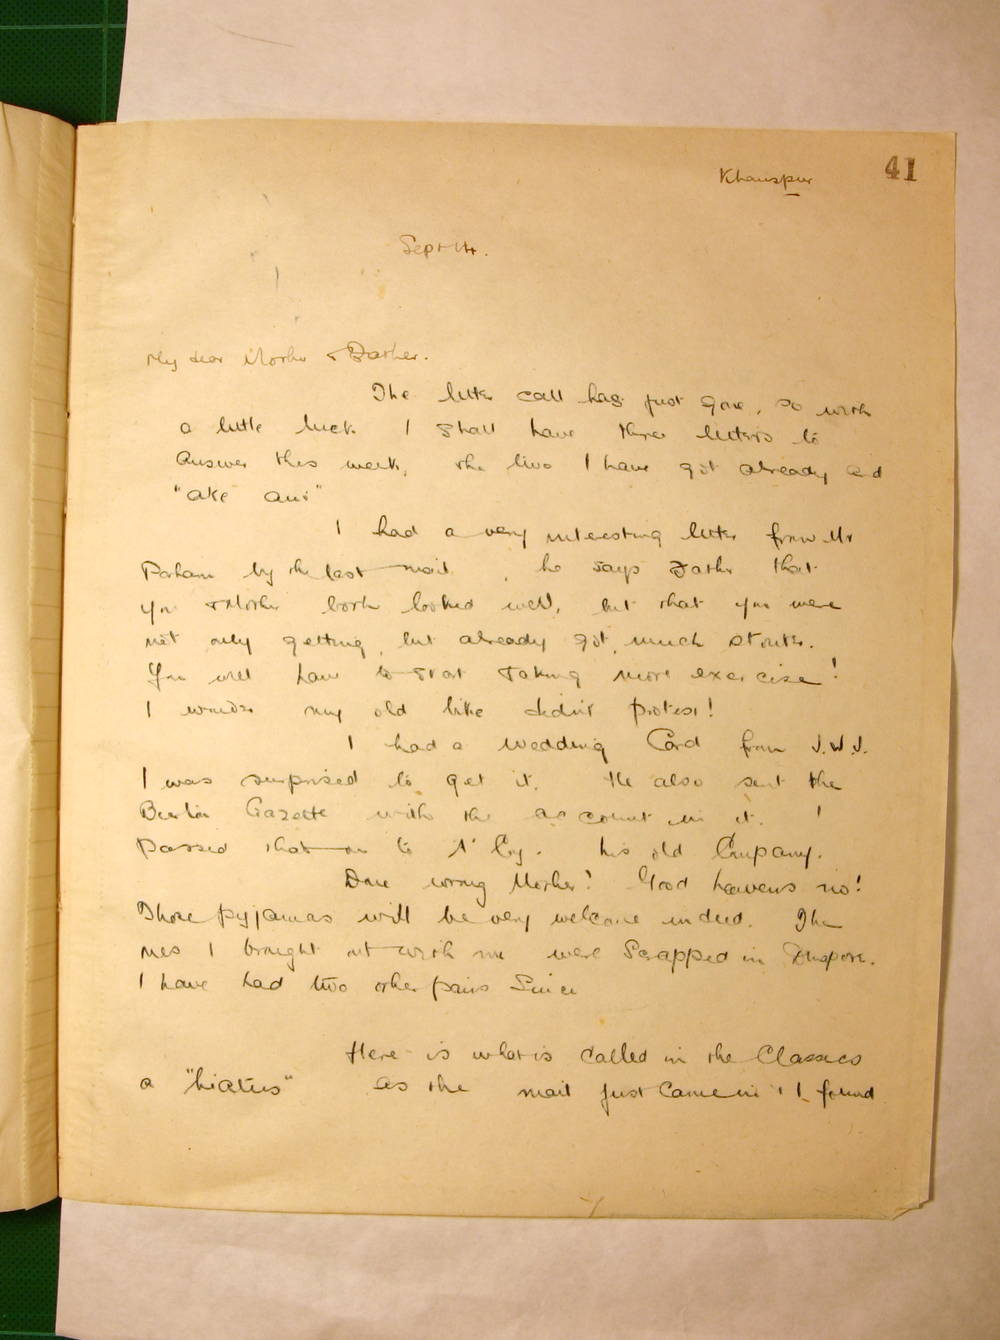 41
Khanspur
Sept 14.
My dear Mother & Father.
The letter call has just gone, so with
a little luck I shall have three letters to
answer this week, the two I have got already and
"ake aur"
I had a very interesting letter from Mr
by the last mail, he says Father that
you & Mother both looked well, but that you were
not only getting, but already got, much stouter.
You will have to start taking more exercise!
I wonder my old bike didn't protest!
I had a wedding Card from J.W.J.
I was surprised to get it. He also sent the
Gazette with the account in it. I
passed that on to 'A' Coy. his old Company.
Done wrong Mother! Good heavens no!
Those pyjamas will be very welcome indeed. The
ones I brought out with me were Scrapped in
I have had two other pairs Since
Here is what is called in the Classics
a "hiatus" as the mail just came in & I found